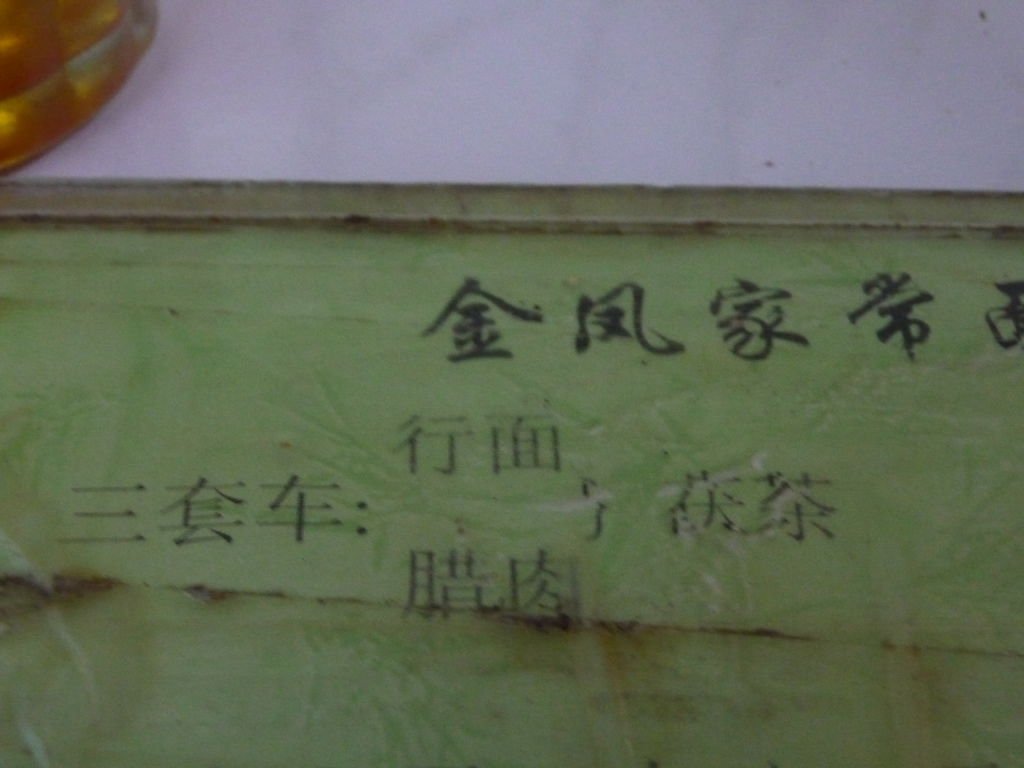 金凤家常
行面
三套车： 茯茶
腊肉